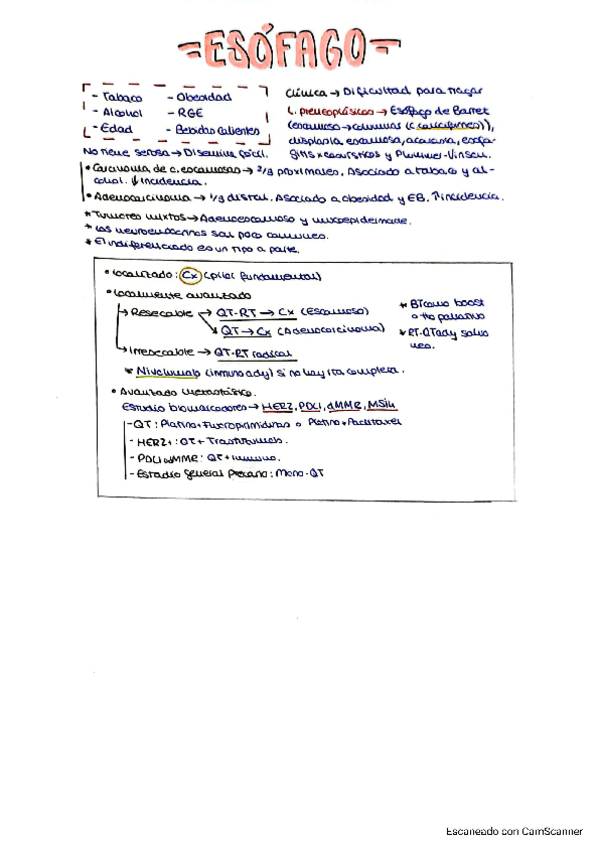 ESÓFAGO
- Tabaco - Obesidad
- Alcohol - RGE
- Edad - Bebidas calientes
Clínica → Dificultad para tragar
L. preneoplásicas → Esófago de Barret
(escamoso → columnas (c. caliciformes)),
displasia escamosa, acalasia, esofa-
gitis x caústicos y Plummer-Vinson.
No tiene serosa → Disemina fácil.
• Carcinoma de c. escamosas → 2/3 proximales. Asociado a tabaco y al-
cohol. ↓ incidencia.
• Adenocarcinoma → 1/3 distal. Asociado a obesidad y EB. ↑ incidencia.
* Tumores mixtos → Adenoescamoso y mucoepidermoide.
* Los neuroendocrinos son poco comunes.
* El indiferenciado es un tipo a parte.
• Localizado: Cx (pilar fundamental)
• Localmente avanzado
→ Resecable → QT-RT → Cx (Escamoso)
QT → Cx (Adenocarcinoma)
→ Irresecable → QT-RT radical
* Nivolumab (inmuno ady) si no hay rta completa.
* BT como boost
o tto paliativo
* RT-QT ady salvo
neo.
• Avanzado metastásico.
Estudio biomarcadores → HER2, PDL1, dMMR, MSIH
- QT: Platino + Fluoropirimidinas o Platino + Paclitaxel
- HER2+: QT + Trastuzumab.
- PDL1 o dMMR: QT + inmuno.
- Estadio general precario: Mono-QT
Escaneado con CamScanner